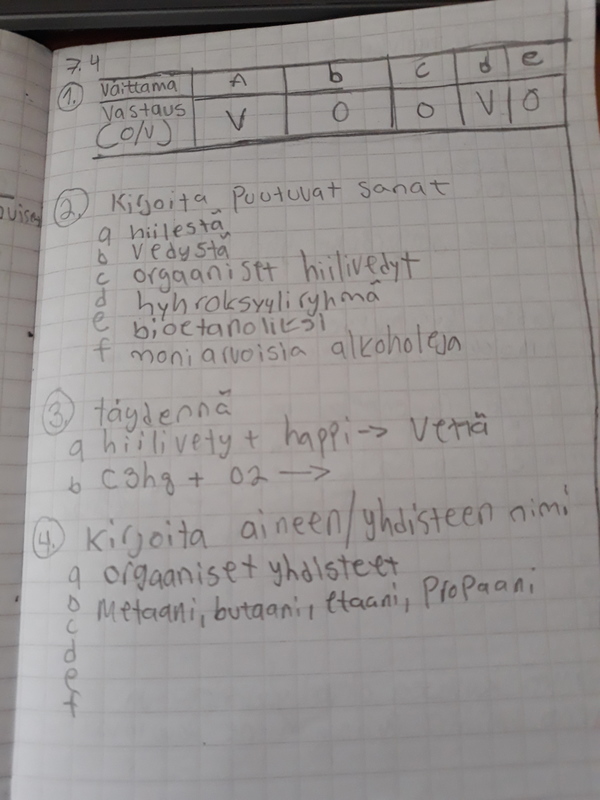 7.4
1. Väittämä A b c d e
Vastaus (O/V) V O O V O
2. Kirjoita Puutuvat sanat
a hiilestä
b vedystä
c orgaaniset hiilivedyt
d hyhroksyyliryhmä
e bioetanoliksi
f moniarvoisia alkoholeja
3. täydennä
a hiilivety + happi -> vettä
b C3h8 + O2 ->
4. Kirjoita aineen/yhdisteen nimi
a orgaaniset yhdisteet
b Metaani, butaani, etaani, Propaani
c
d
e
f